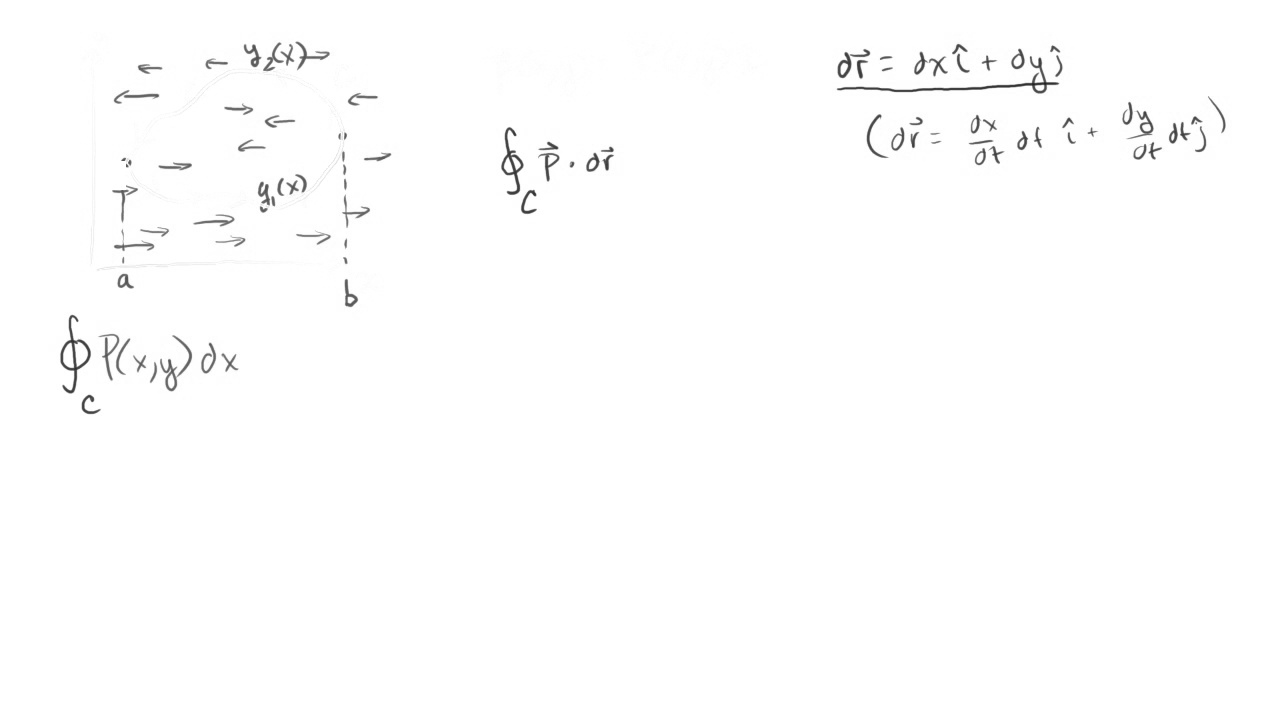 y₂(x)
y₁(x)
a
b
∮_C P(x,y) dx
∮_C P⃗ · dr⃗
dr⃗ = dx î + dy ĵ
(dr⃗ = dx/dt dt î + dy/dt dt ĵ)